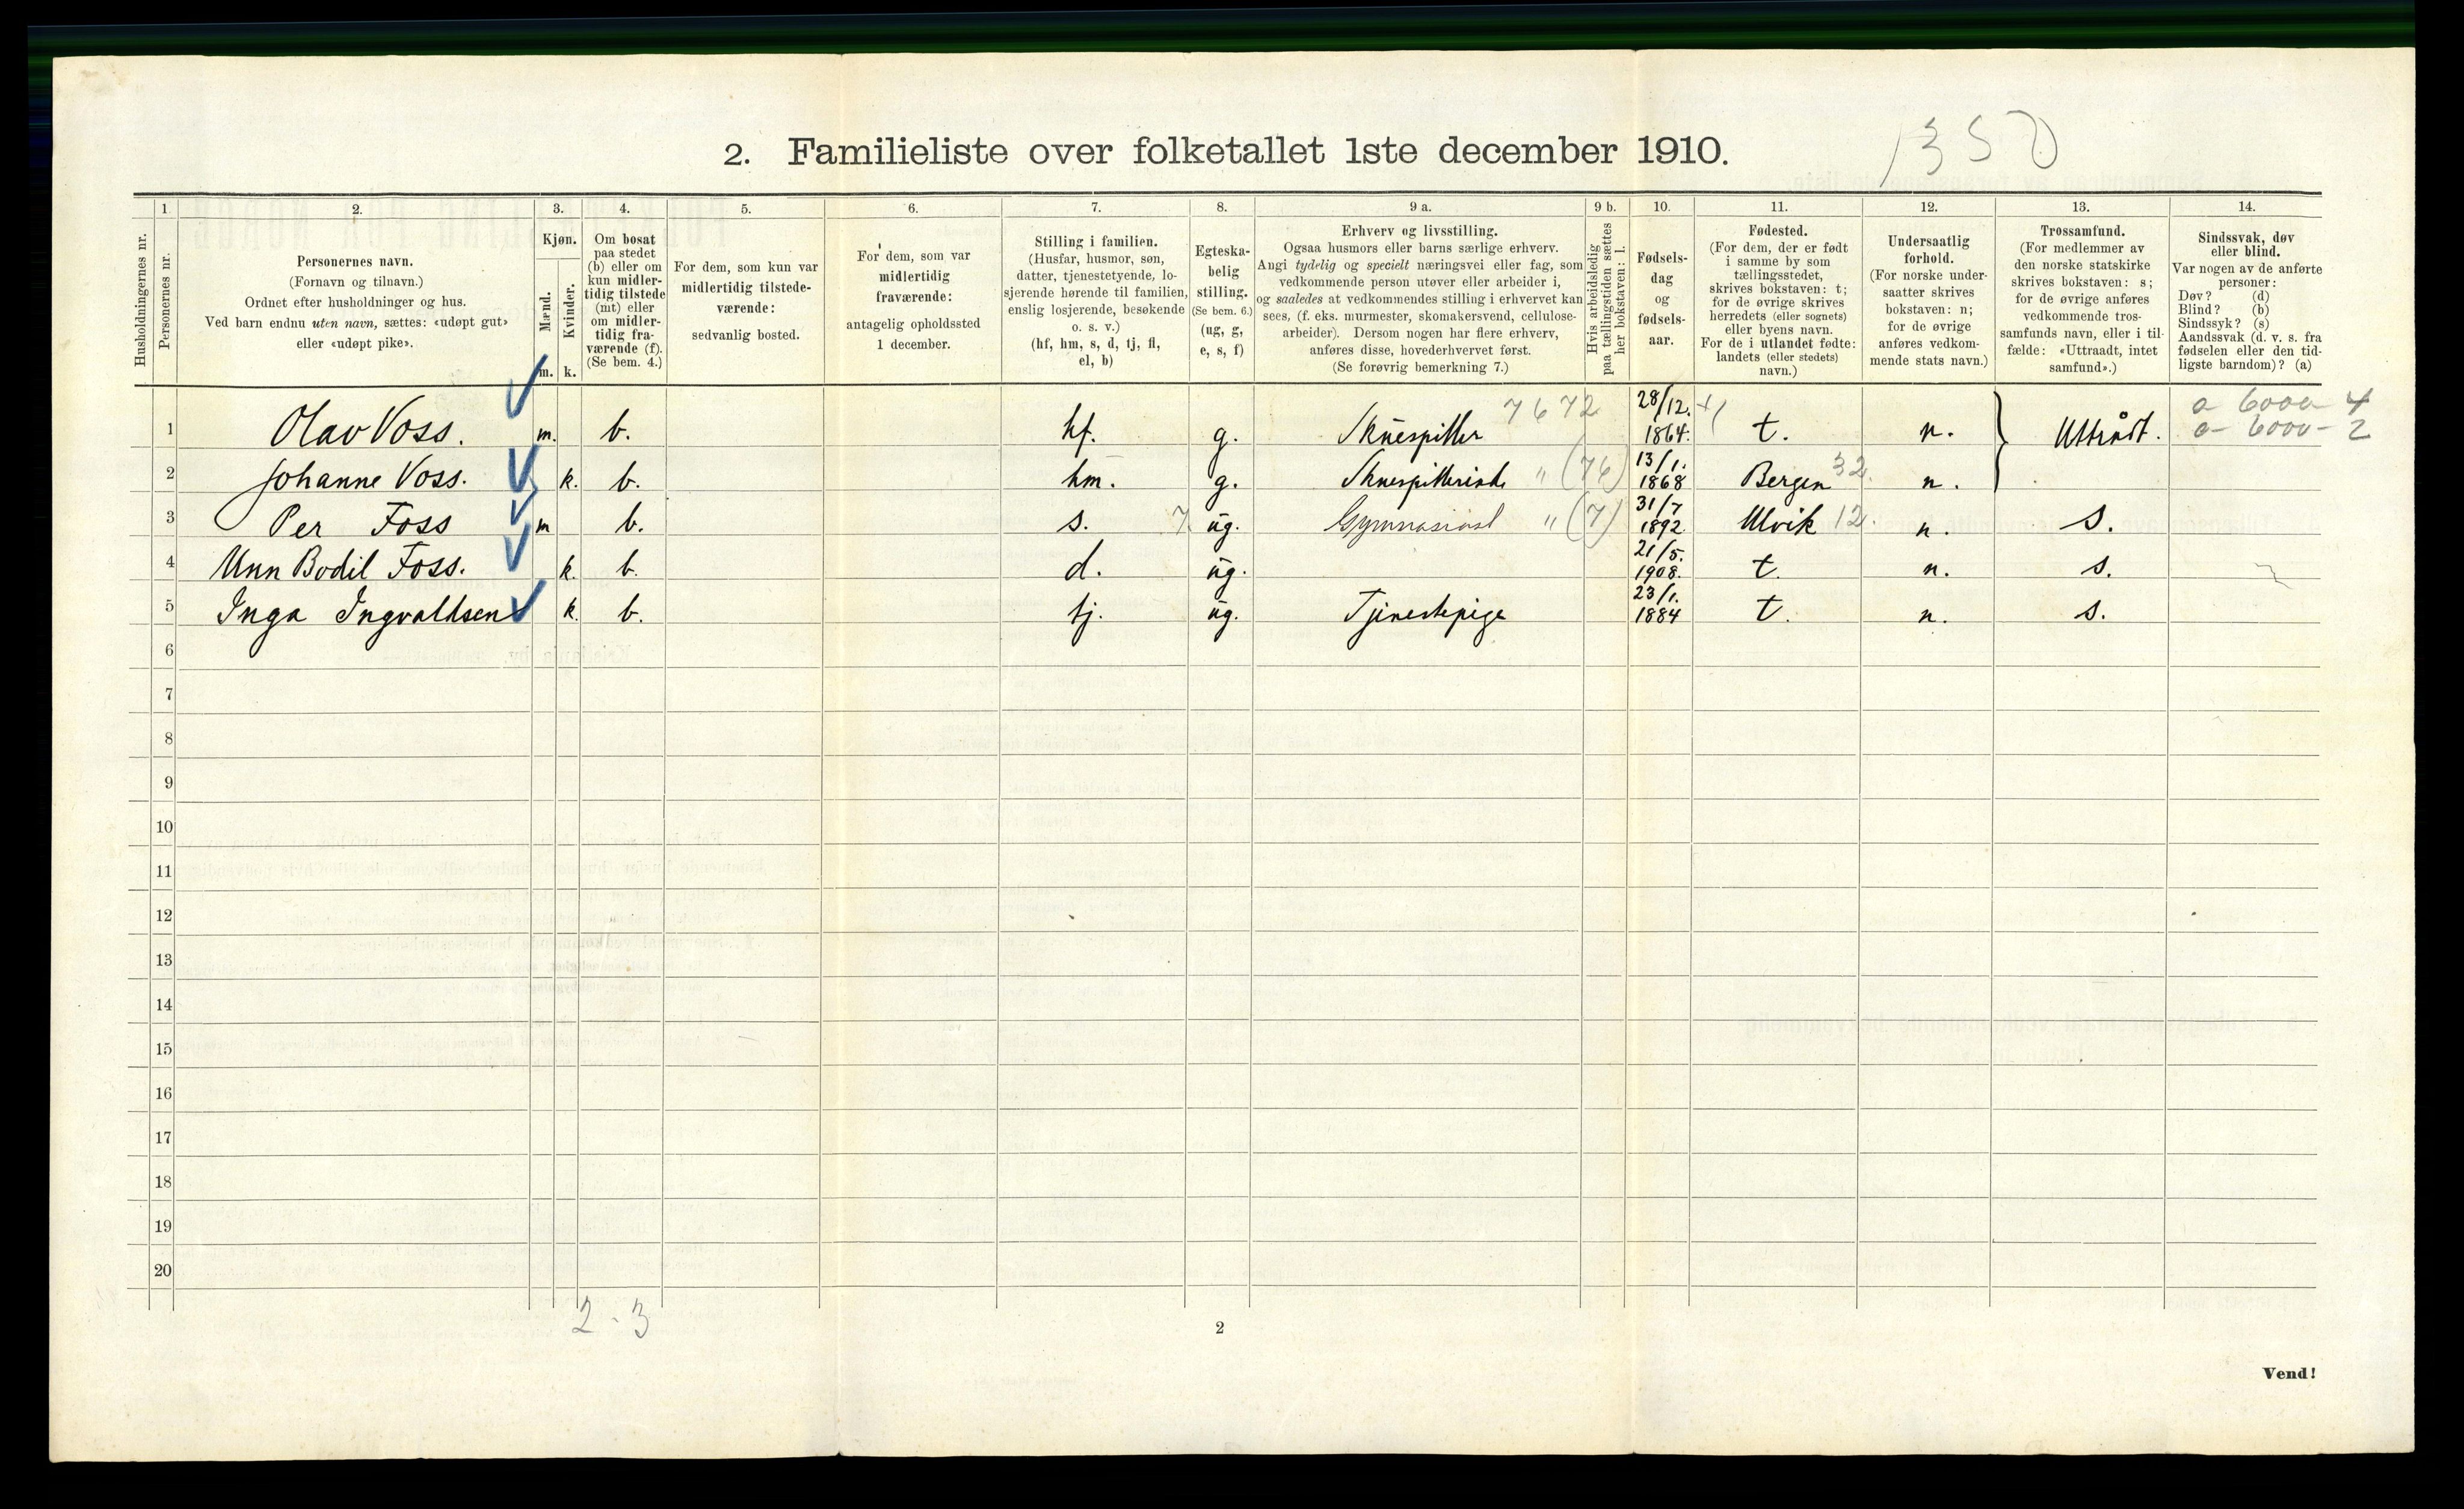 2. Familieliste over folketallet 1ste december 1910.
1350
1. 2. 3. 4. 5. 6. 7. 8. 9 a. 9 b. 10. 11. 12. 13. 14.
Husholdningernes nr.
Personernes nr.
Personernes navn.
(Fornavn og tilnavn.)
Ordnet efter husholdninger og hus.
Ved barn endnu uten navn, sættes: «udøpt gut»
eller «udøpt pike».
Kjøn.
Mænd.
Kvinder.
m. k.
Om bosat
paa stedet
(b) eller om
kun midler-
tidig tilstede
(mt) eller
om midler-
tidig fra-
værende (f).
(Se bem. 4.)
For dem, som kun var
midlertidig tilstede-
værende:
sedvanlig bosted.
For dem, som var
midlertidig
fraværende:
antagelig opholdssted
1 december.
Stilling i familien.
(Husfar, husmor, søn,
datter, tjenestetyende, lo-
sjerende hørende til familien,
enslig losjerende, besøkende
o. s. v.)
(hf, hm, s, d, tj, fl,
el, b)
Egteska-
belig
stilling.
(Se bem. 6.)
(ug, g,
e, s, f)
Erhverv og livsstilling.
Ogsaa husmors eller barns særlige erhverv.
Angi tydelig og specielt næringsvei eller fag, som
vedkommende person utøver eller arbeider i,
og saaledes at vedkommendes stilling i erhvervet kan
sees, (f. eks. murmester, skomakersvend, cellulose-
arbeider). Dersom nogen har flere erhverv,
anføres disse, hovederhvervet først.
(Se forøvrig bemerkning 7.)
Hvis arbeidsledig
paa tællingstiden sættes
her bokstaven: l.
Fødsels-
dag
og
fødsels-
aar.
Fødested.
(For dem, der er født
i samme by som
tællingsstedet,
skrives bokstaven: t;
for de øvrige skrives
herredets (eller sognets)
eller byens navn.
For de i utlandet fødte:
landets (eller stedets)
navn.)
Undersaatlig
forhold.
(For norske under-
saatter skrives
bokstaven: n;
for de øvrige
anføres vedkom-
mende stats navn.)
Trossamfund.
(For medlemmer av
den norske statskirke
skrives bokstaven: s;
for de øvrige anføres
vedkommende tros-
samfunds navn, eller i til-
fælde: «Uttraadt, intet
samfund».)
Sindssvak, døv
eller blind.
Var nogen av de anførte
personer:
Døv? (d)
Blind? (b)
Sindssyk? (s)
Aandssvak (d. v. s. fra
fødselen eller den tid-
ligste barndom)? (a)
1 Olav Voss. m. b. hf. g. Skuespiller 7672 28/12. 1864. t. n. Uttrådt. a 6000 4
a- 6000-2
2 Johanne Voss. k. b. hm. g. Skuespillerinde " (76) 13/1. 1868 Bergen 32. n.
3 Per Foss m b. s. 7 ug. Gymnasiast " (7) 31/7 1892. Ulvik 12. n. s.
4 Unn Bodil Foss. k. b. d. ug. 21/5. 1908. t. n. s.
5 Inga Ingvaldsen k. b. tj. ug. Tjenestepige 23/1. 1884 t. n. s.
6
7
8
9
10
11
12
13
14
15
16
17
18
19
20
2 - 3
2
Vend!